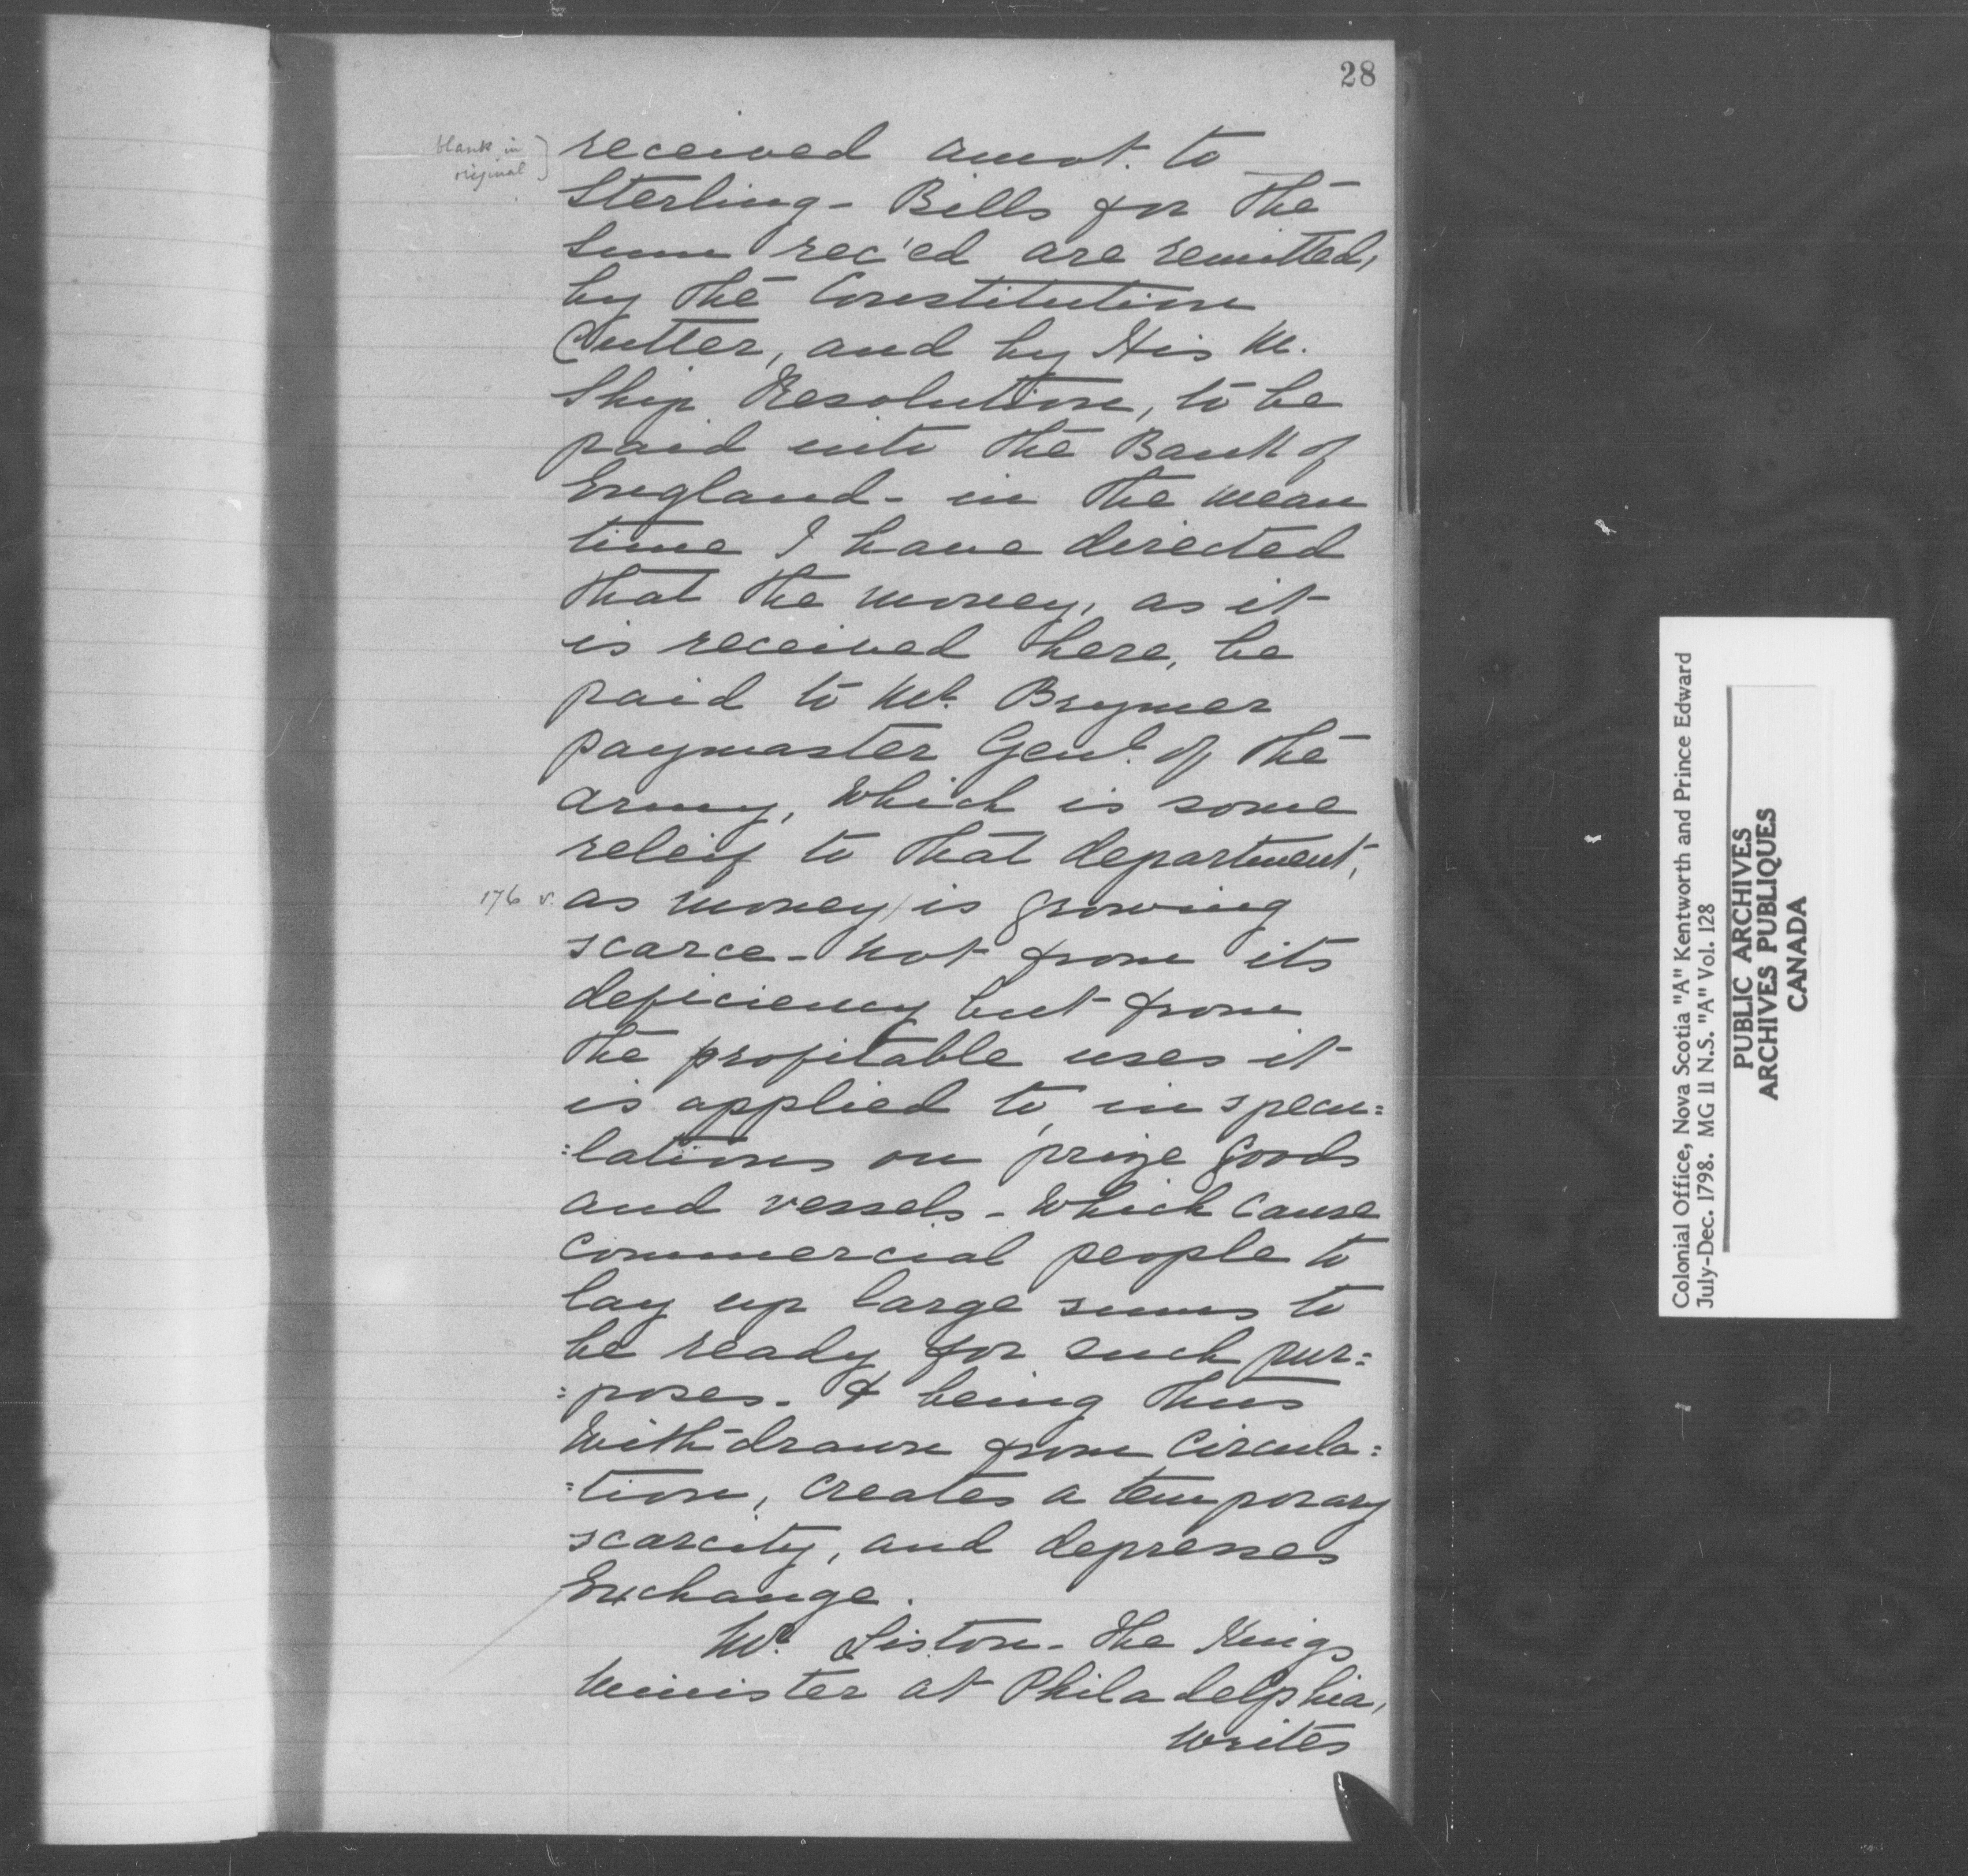 28
blank in
original
received amot. to
Sterling - Bills for the
sum rec'ed are remitted,
by the Constitution
Cutter, and by His M.
Ship Resolution, to be
paid into the Bank of
England - in the mean
time I have directed
that the money, as it
is received here, be
paid to Mr. Brymer
paymaster Genl. of the
army, which is some
releif to that department,
176 v. as money / is growing
scarce - not from its
deficiency but from
the profitable uses it
is applied to, in specu=
=lations on prize goods
and vessels - which cause
commercial people to
lay up large sums to
be ready for such pur=
=poses - & being thus
withdrawn from circula=
=tion, creates a temporary
scarcity, and depresses
Exchange.
Mr. Liston - the Kings
Minister at Philadelphia,
writes
Colonial Office, Nova Scotia "A" Kentworth and Prince Edward
July-Dec. 1798. MG II N.S. "A" Vol. 128
PUBLIC ARCHIVES
ARCHIVES PUBLIQUES
CANADA